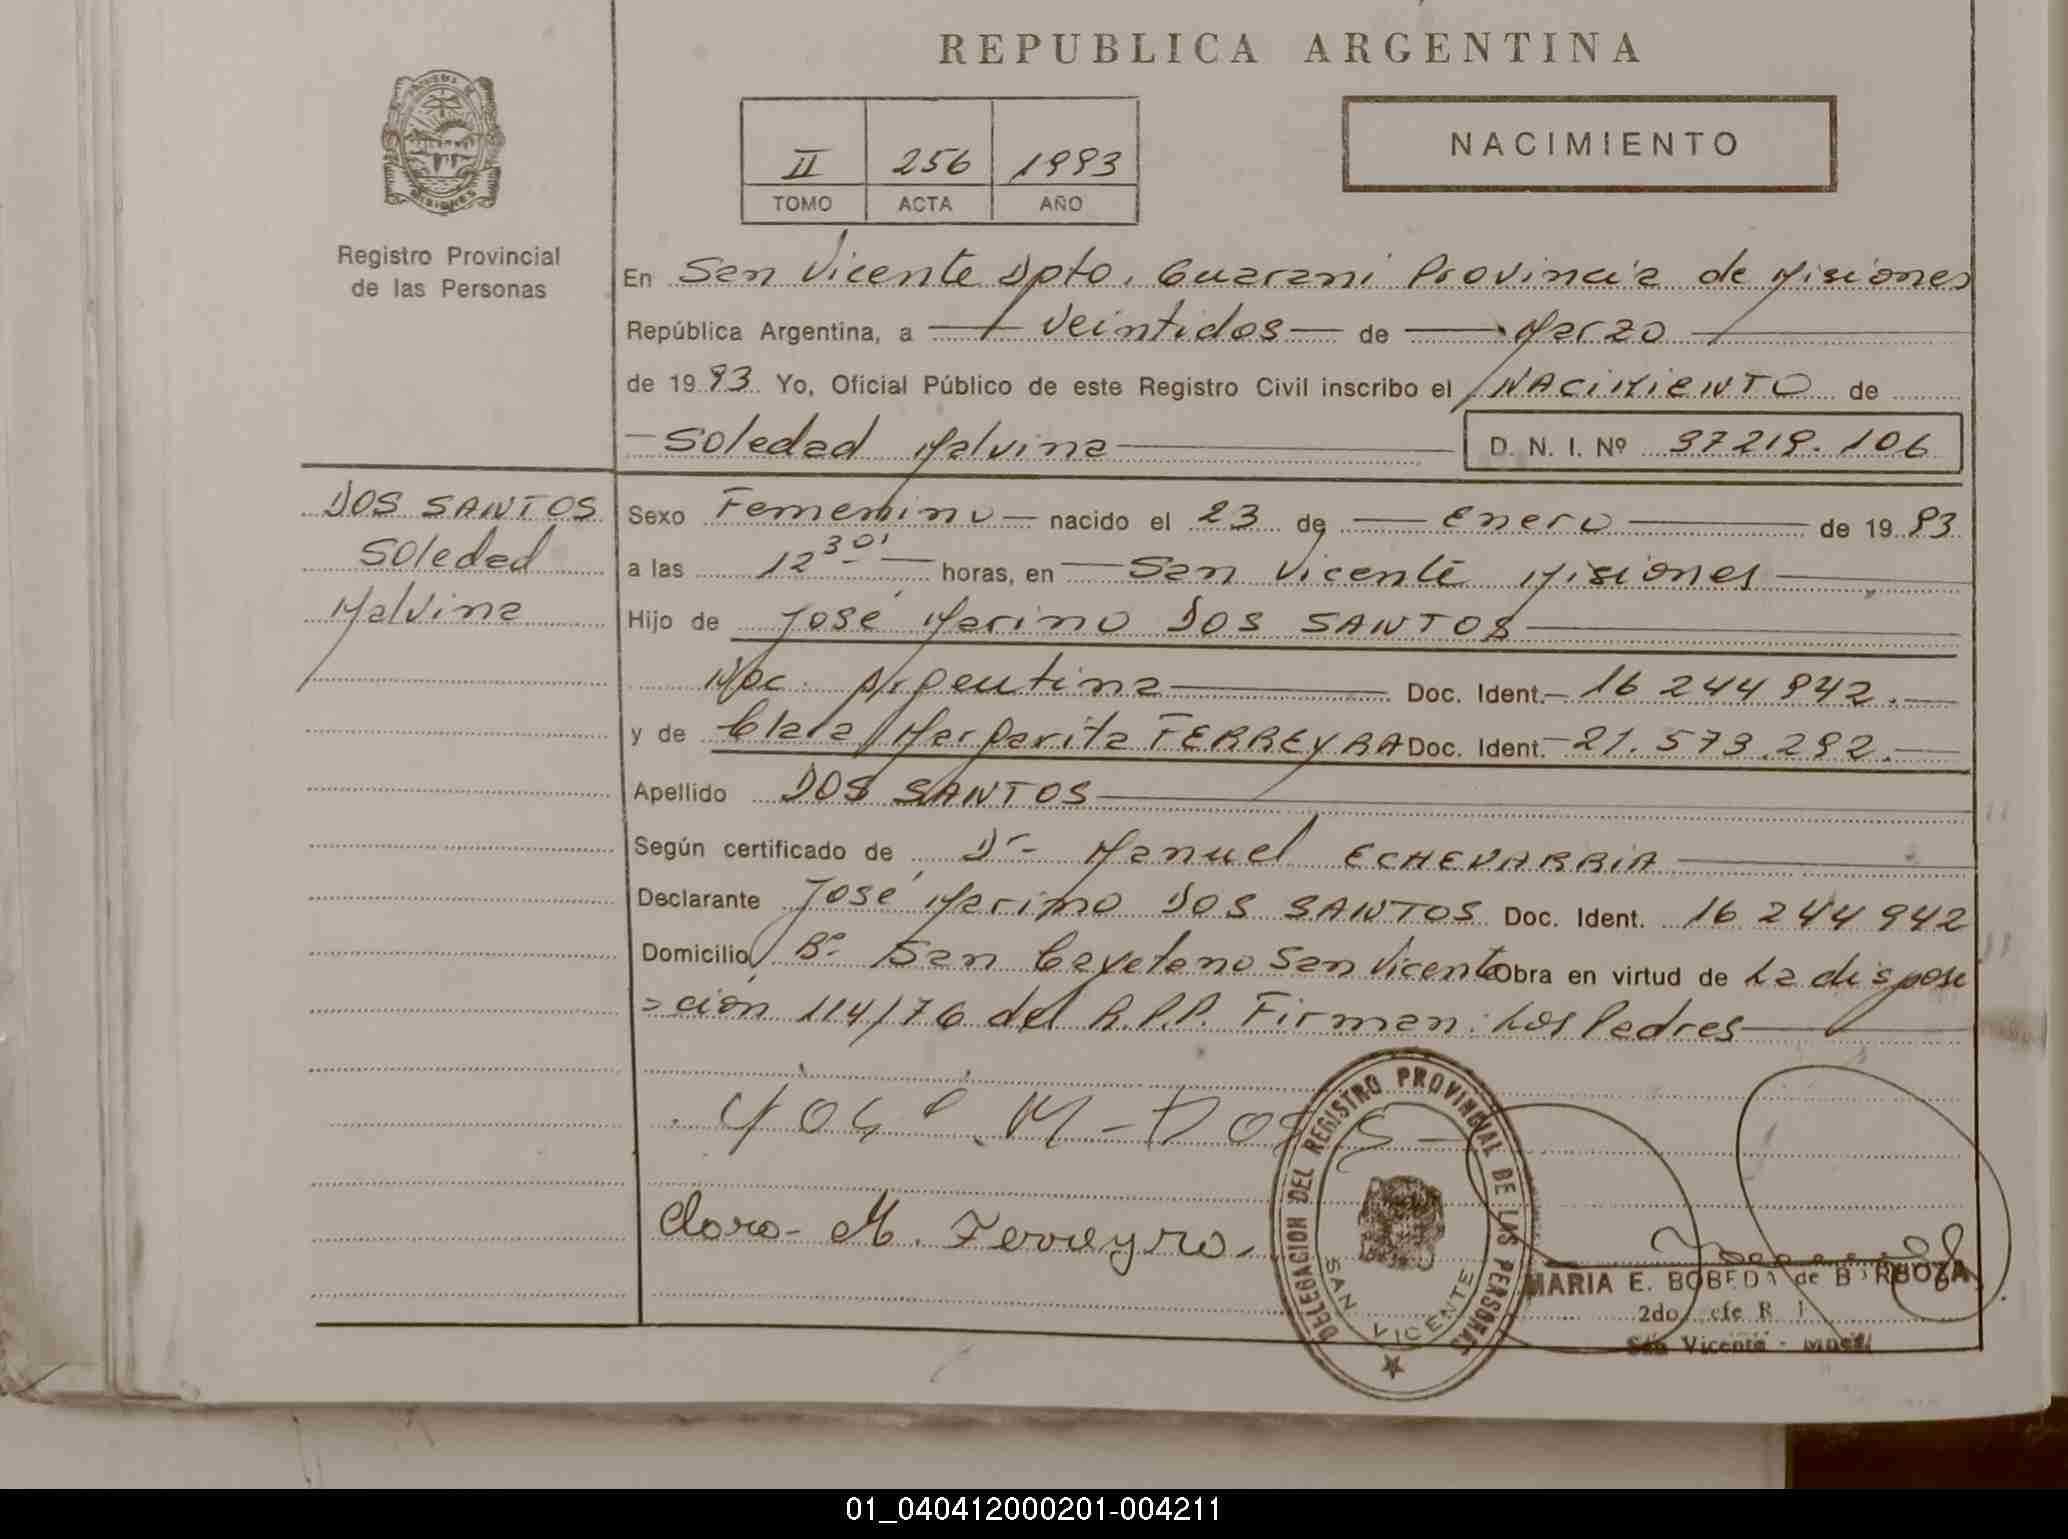 REPUBLICA ARGENTINA
II 256 1993
TOMO ACTA AÑO
NACIMIENTO
MISIONES
Registro Provincial
de las Personas
En San Vicente Dpto. Guarani Provincia de Misiones
República Argentina, a Veintidos de Marzo
de 1993 Yo, Oficial Público de este Registro Civil inscribo el NACIMIENTO de
Soledad Malvina
D. N. I. Nº 37219.106
DOS SANTOS
Soledad
Malvina
Sexo Femenino nacido el 23 de enero de 1993
a las 12 30' horas, en San Vicente Misiones
Hijo de José Marino DOS SANTOS
Nac. Argentina Doc. Ident. 16 244 942.
y de Clara Margarita FERREYRA Doc. Ident. 21.573.292.
Apellido DOS SANTOS
Según certificado de Dr Manuel ECHEVARRIA
Declarante José Marino DOS SANTOS Doc. Ident. 16 244 942
Domicilio Bº San Cayetano San Vicente Obra en virtud de La disposi
=ción 114/76 del R.P.P. Firman: Los Padres
José M-Dos S-
Clara M. Ferreyra.
DELEGACION DEL REGISTRO PROVINCIAL DE LAS PERSONAS
SAN VICENTE
MARIA E. BOBEDA de BARBOZA
2do
San Vicente -
01_040412000201-004211